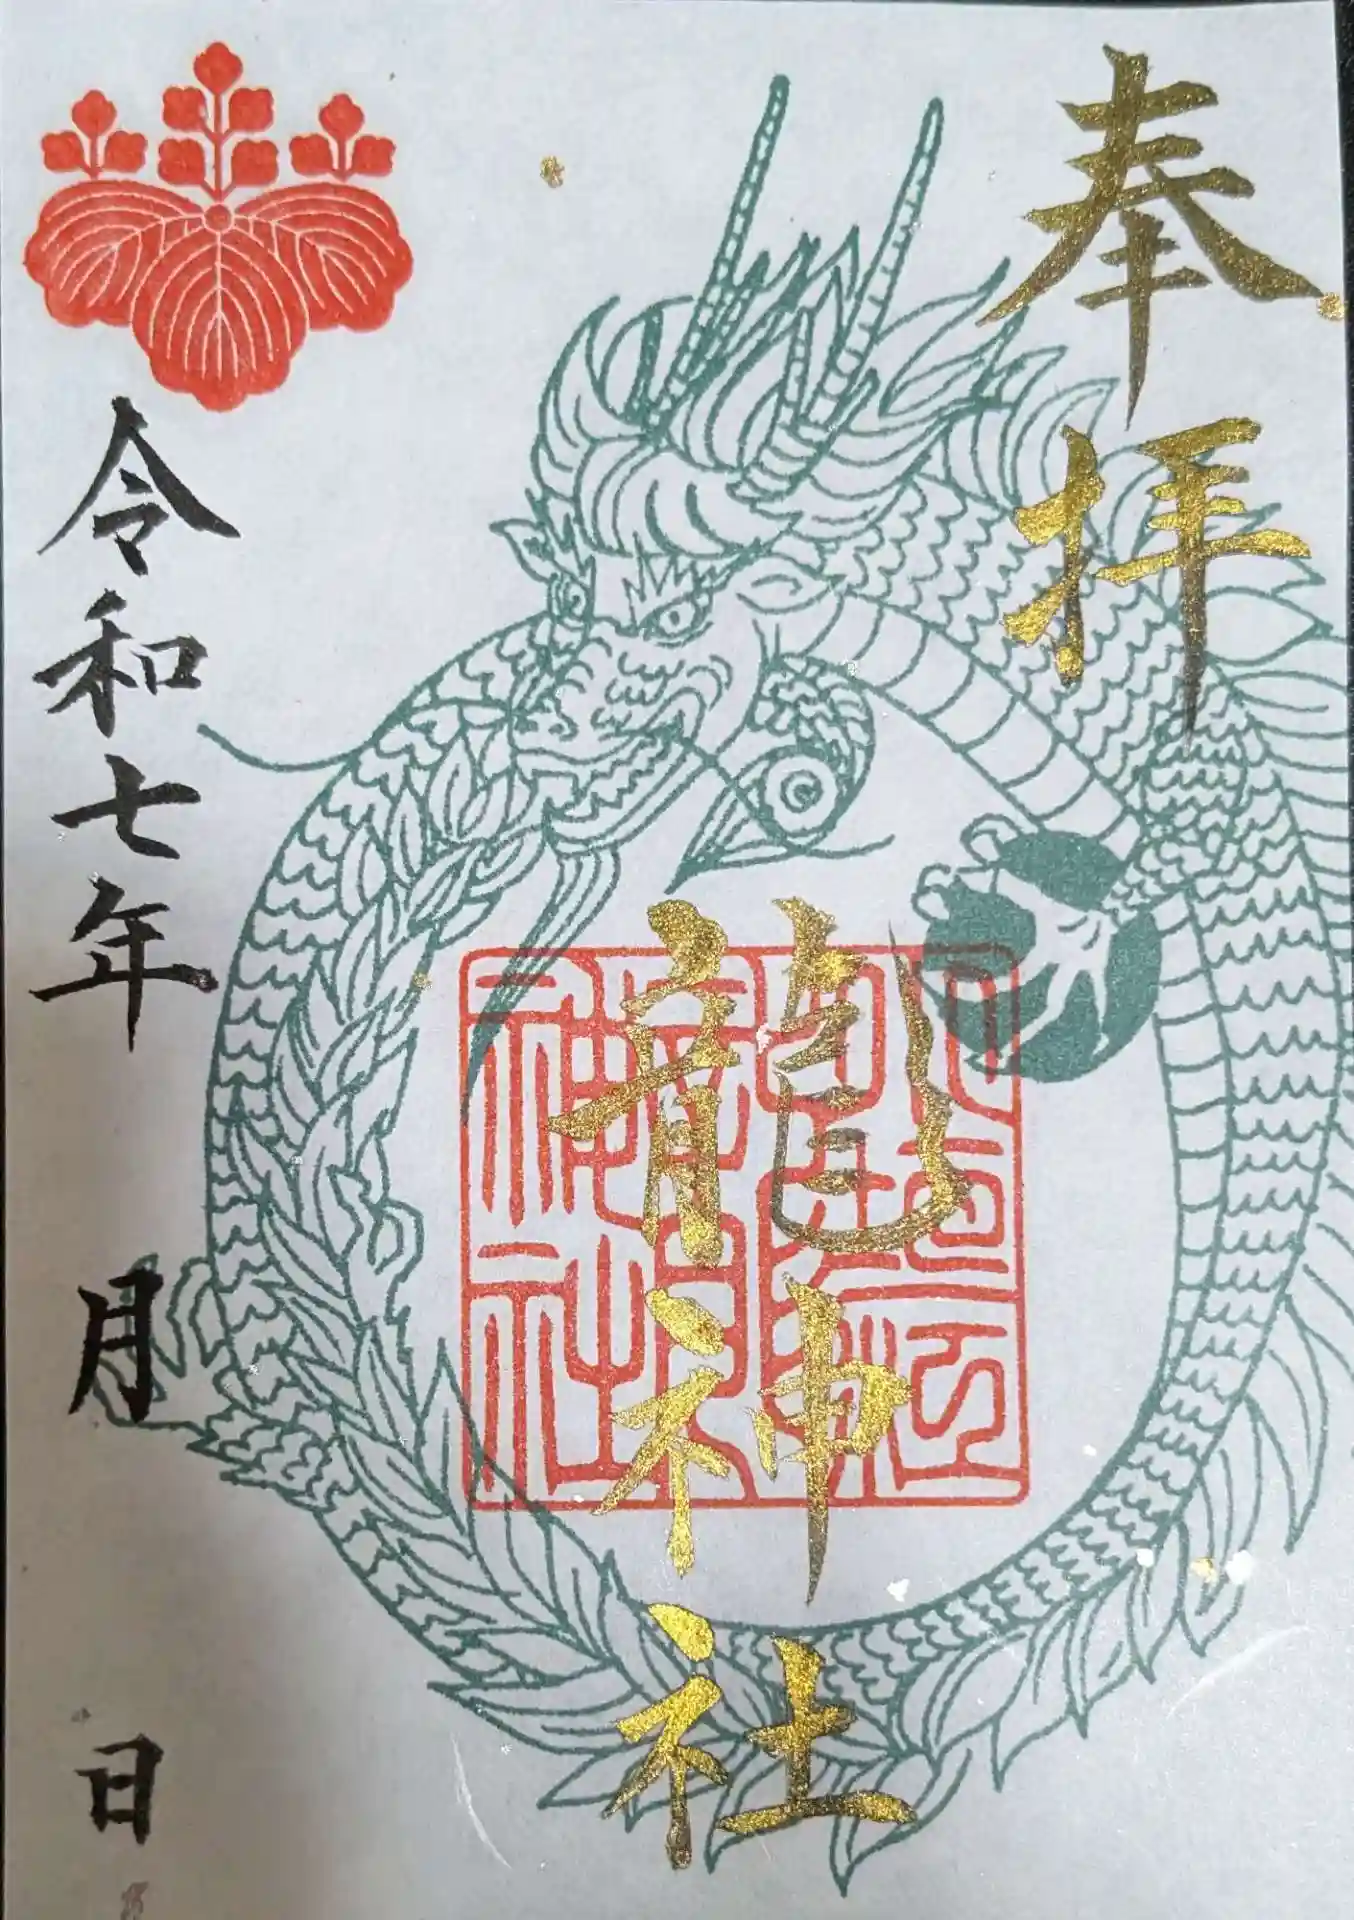 奉拝
龍神社
令和七年 月 日